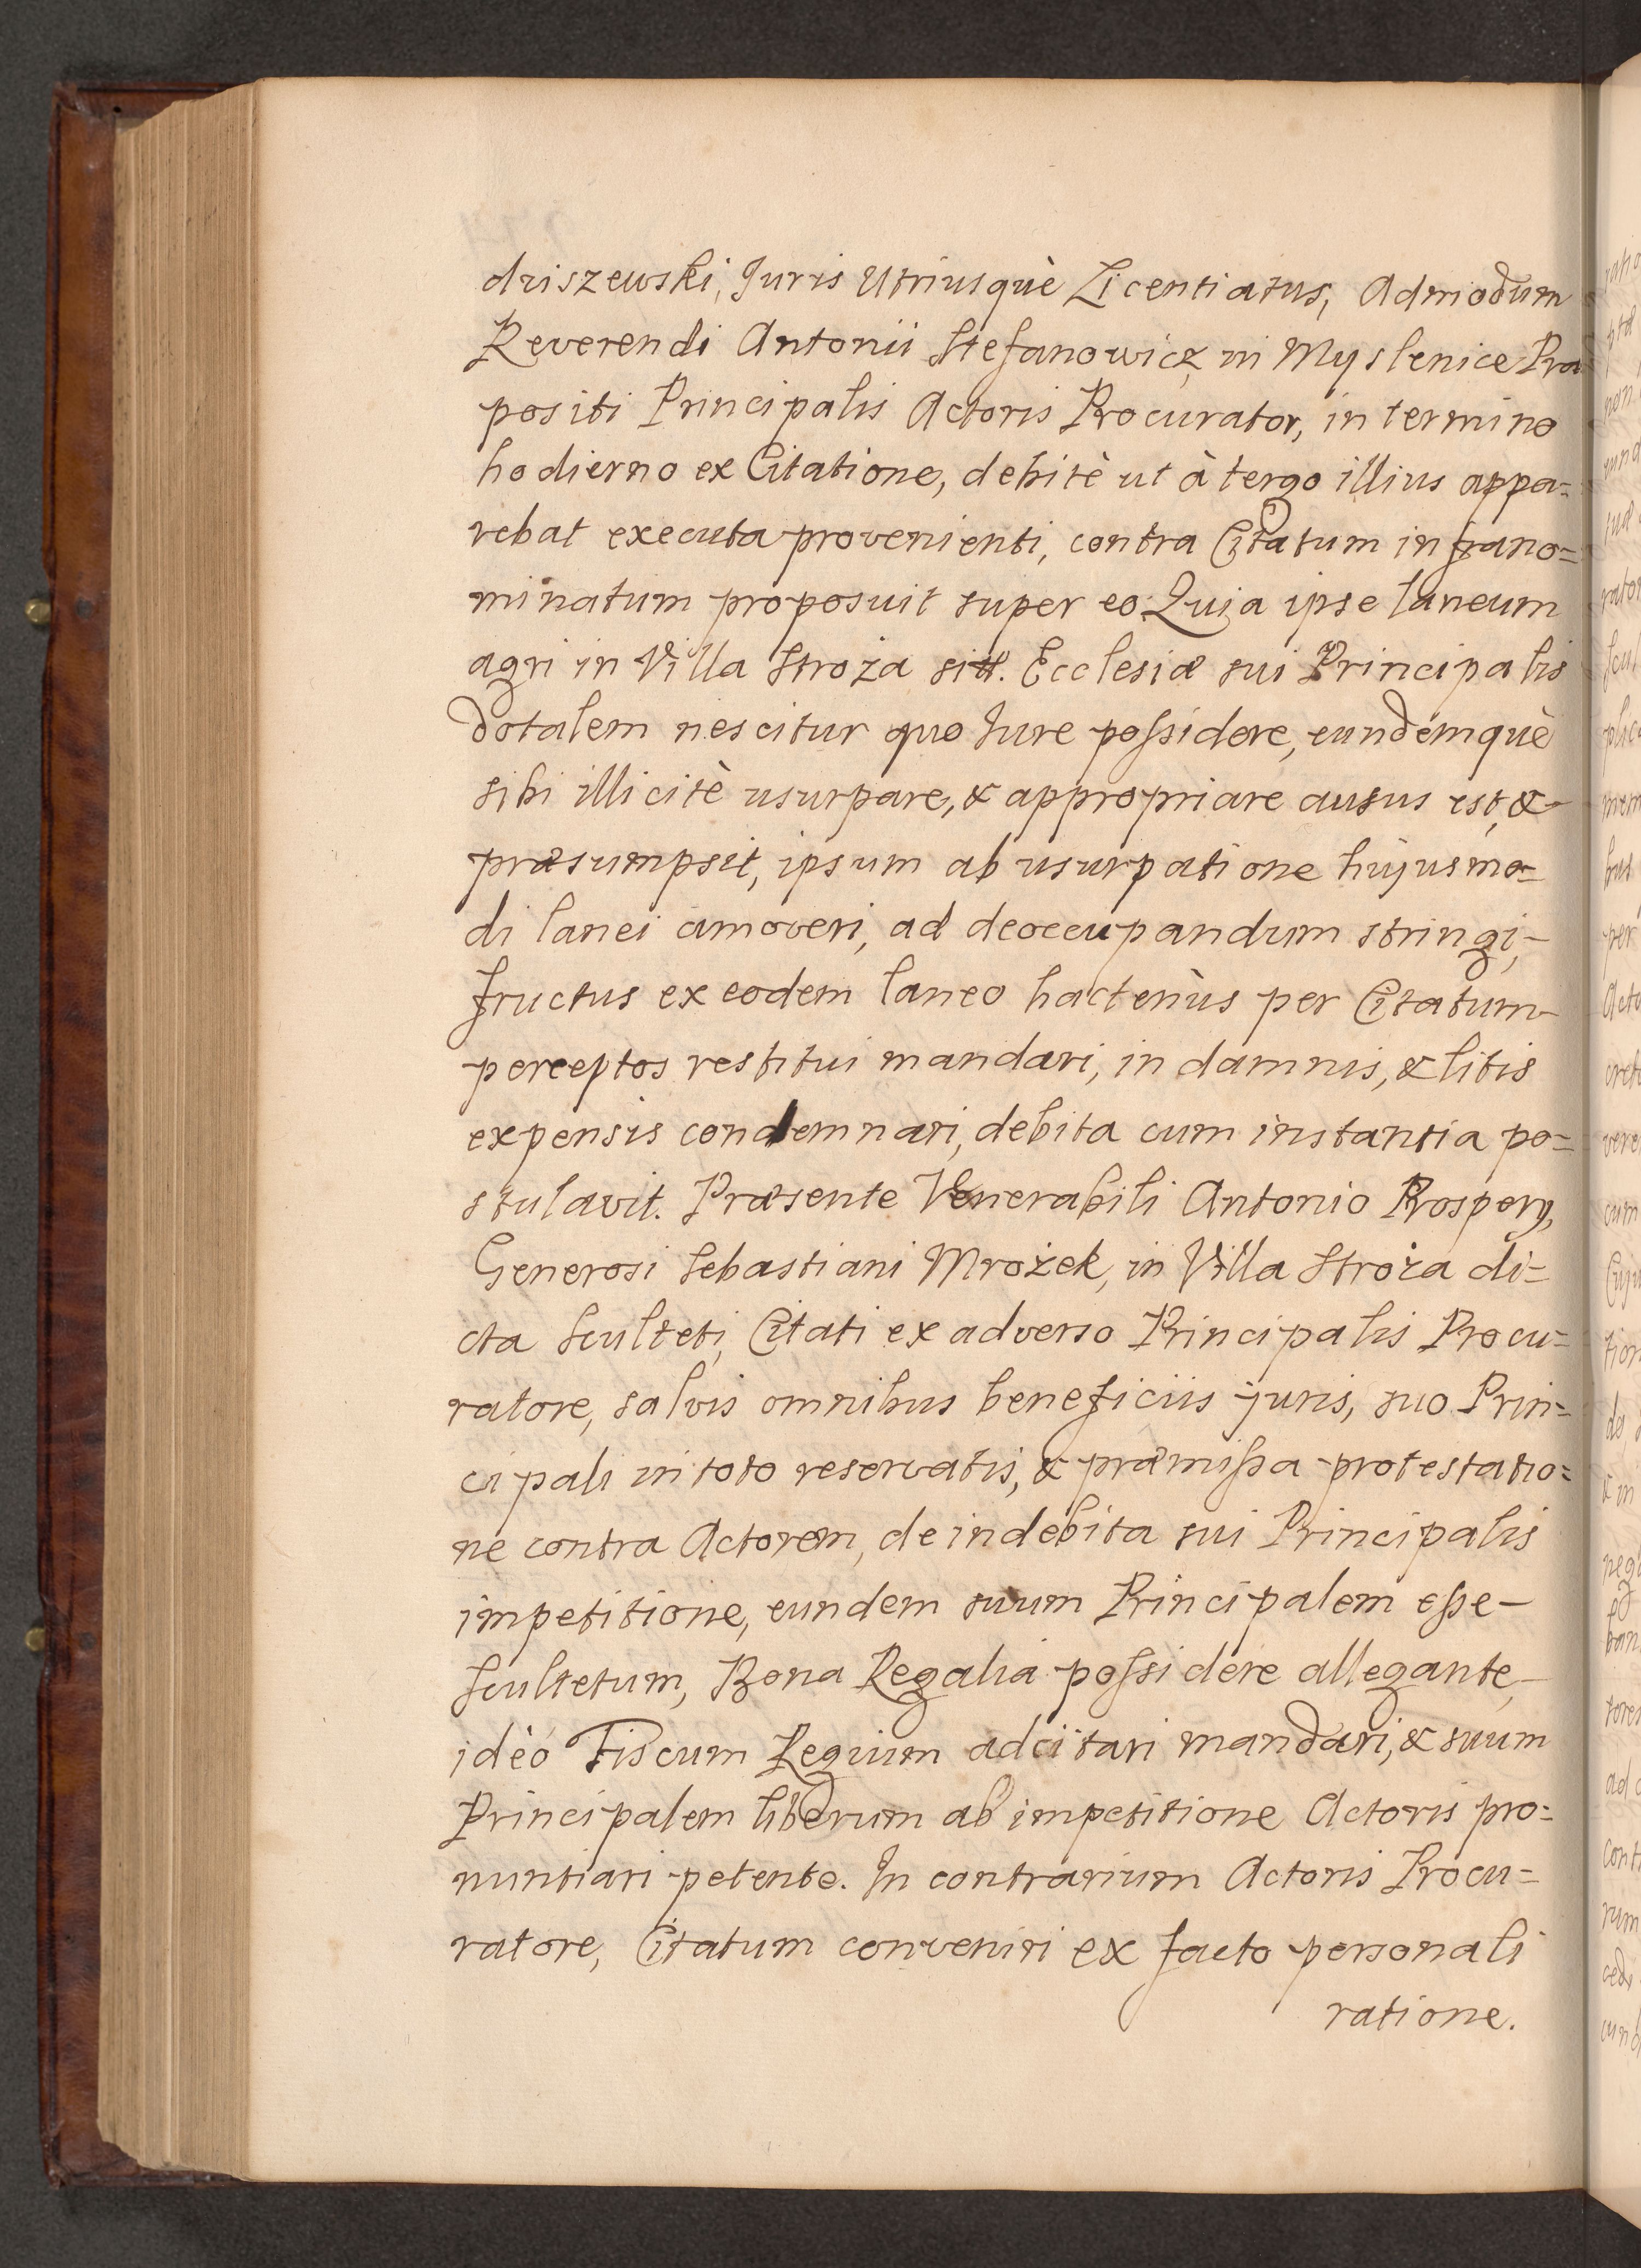 driszewski, Juris Utriusquè Licentiatus, Admodum
Reverendi Antonii Stefanowicz in Myslenice Præ
positi Principalis Actoris Procurator, in termino
hodierno ex Citatione, debitè ut à tergo illius appa=
rebat executa provenienti, contra Citatum infrano=
minatum proposuit super eo: Quia ipse laneum
agri in Villa Stroża sitt. Ecclesiæ sui Principalis
dotalem nescitur quo Jure possidere, eundemquè
sibi illicitè usurpare, & appropriare ausus est, &
præsumpsit, ipsum ab usurpatione hujusmo=
di lanei amoveri, ad deoccupandum stringi,
fructus ex eodem laneo hactenùs per Citatum
perceptos restitui mandari, in damnis, & litis
expensis condemnari, debita cum instantia po=
stulavit. Præsente Venerabili Antonio Rospery,
Generosi Sebastiani Mrożek, in Villa Stroża di=
cta Sculteti, Citati ex adverso Principalis Procu=
ratore, salvis omnibus beneficiis juris, suo Prin=
cipali in toto reservatis, & præmissa protestatio=
ne contra Actorem, de indebita sui Principalis
impetitione, eundem suum Principalem esse
Scultetum, Bona Regalia possidere allegante,
ideò Fiscum Regium adcitari mandari, & suum
Principalem liberum ab impetitione Actoris pro=
nuntiari petente. In contrarium Actoris Procu=
ratore, Citatum conveniri ex facto personali
ratione.